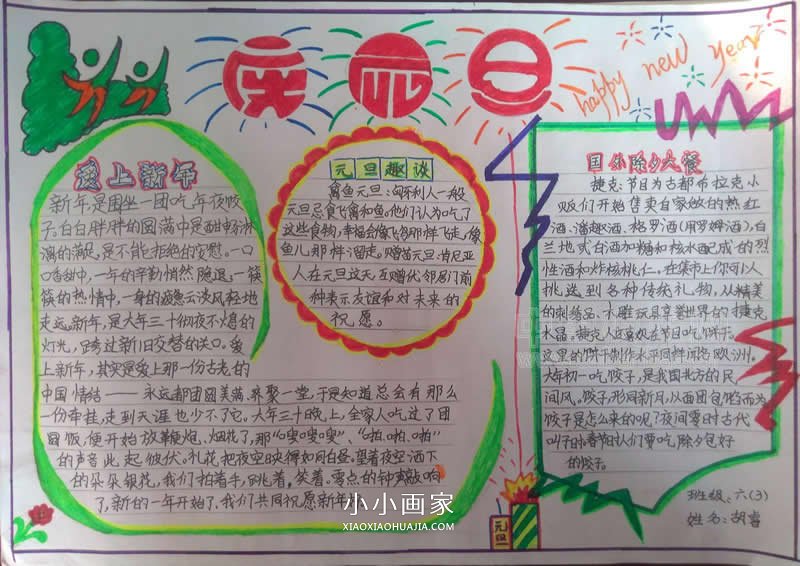 庆元旦
happy new year
爱上新年
新年,是围坐一团吃年夜饺
子,白白胖胖的圆满中是酣畅淋
漓的满足,是不能拒绝的安慰。一口
口香甜中,一年的辛勤悄然隐退,一筷
筷的热情中,一身的疲惫云淡风轻地
走远。新年,是大年三十彻夜不熄的
灯光,跨过新旧交替的关口。爱
上新年,其实是爱上那一份古老的
中国情结——永远都团圆美满,齐聚一堂,于是知道总会有那么
一份牵挂,走到天涯也少不了它。大年三十晚上,全家人吃过了团
圆饭,便开始放鞭炮、烟花了,那“嗖嗖嗖”、“啪啪啪”
的声音此起彼伏。礼花把夜空映得如同白昼。望着夜空洒下
的朵朵银花,我们拍着手,跳着,笑着。零点的钟声敲响
了,新的一年开始了,我们共同祝愿新年
元旦趣谈
禽鱼元旦:匈牙利人一般
元旦忌食飞禽和鱼。他们认为吃了
这些食物,幸福会像飞鸟那样飞走,像
鱼儿那样溜走。赠苗元旦:肯尼亚
人在元旦这天,互赠优邻居门前
种表示友谊和对未来的
祝愿。
国外除夕大餐
捷克:节日为古都布拉克小
贩们开始售卖自家做的热红
酒、潘趣酒、格罗酒(用罗姆酒),白
兰地式白酒加糖和核水配成的烈
性酒和炸核桃仁。在集市上你可以
挑选到各种传统礼物,从精美
的刺绣品、木雕玩具享誉世界的捷克
水晶。捷克人还喜欢在节日吃饼干。
这里的饼干制作水平同样闻名欧洲。
大年初一吃饺子,是我国北方的民
间风。饺子,形同新月,从面团包馅而为
饺子是怎么来的呢?夜间零时古代
叫子时,春节时人们要吃除夕包好
的饺子。
元旦
班级:六(3)
姓名:胡喜
小小画家
XIAOXIAOHUAJIA.COM